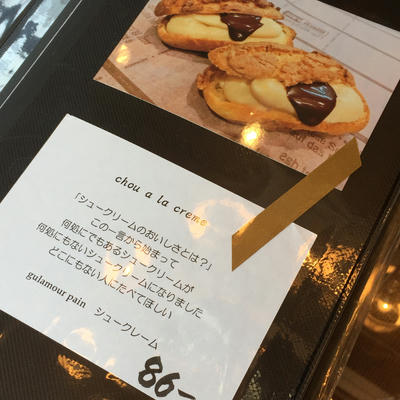 chou a la creme
「シュークリームのおいしさとは？」
この一言から始まって
何処にでもあるシュークリームが
何処にもないシュークリームになりました
どこにもない人にたべてほしい
gulamour pain シュークレーム
86-